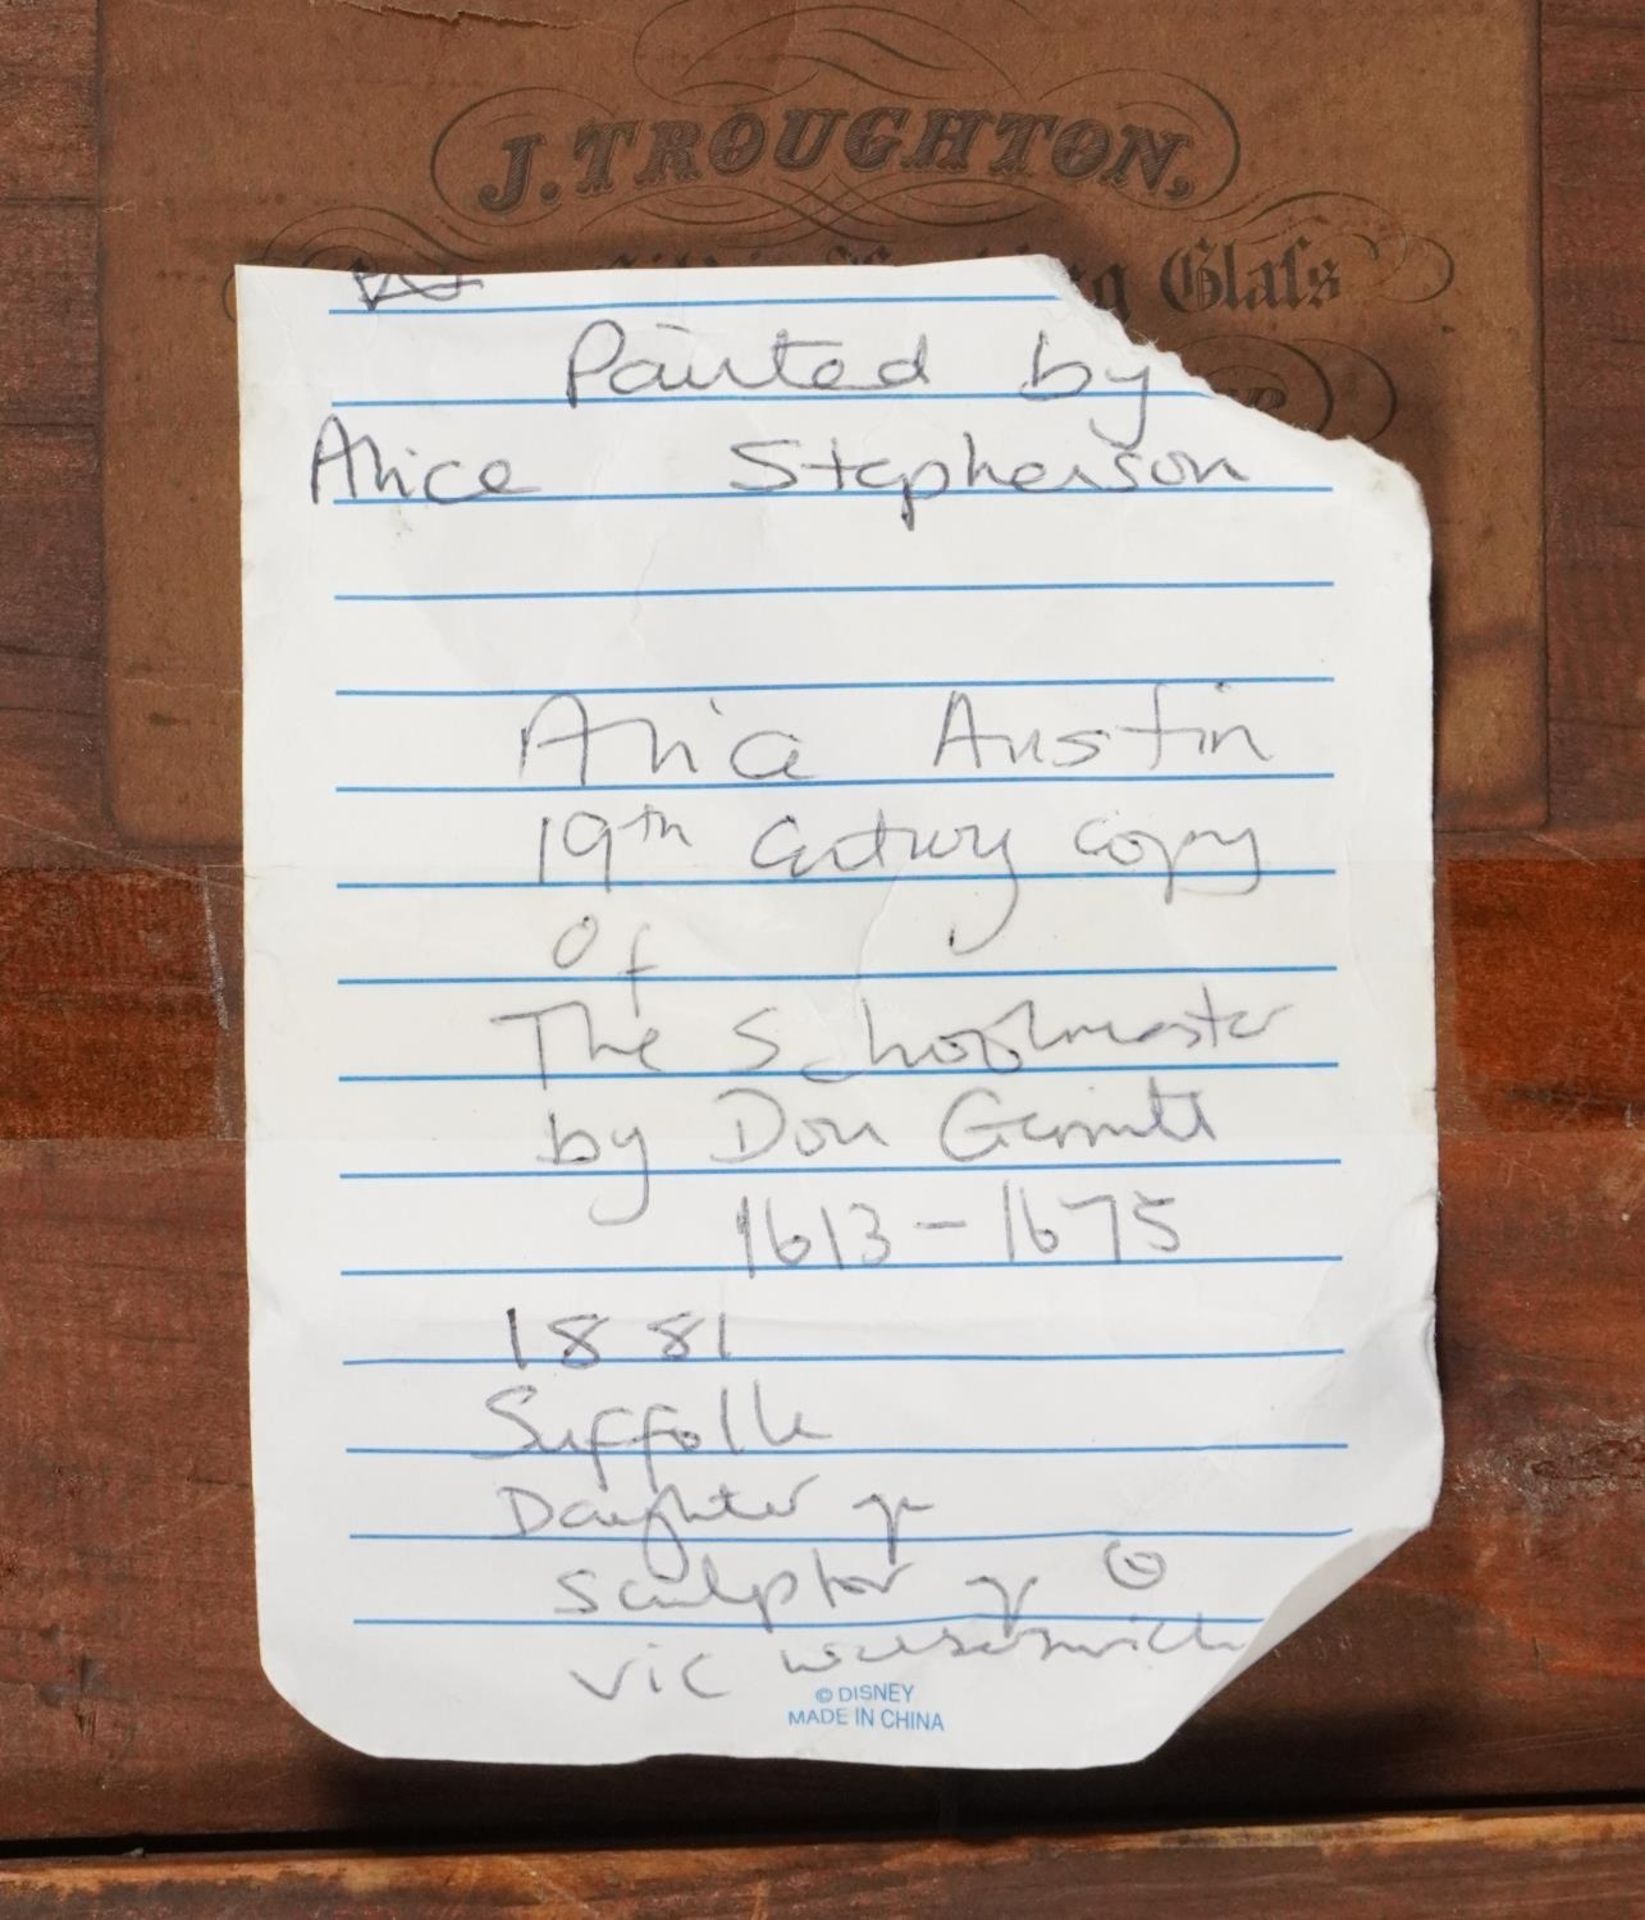 J. TROUGHTON,
g Glaſs
Painted by
Alice Stephenson
Alice Austin
19th Century copy
of
The Schoolmaster
by Dou Gerritt
1613 - 1675
1881
Suffolk
Daughter of
Sculptor of
Vic
© DISNEY
MADE IN CHINA